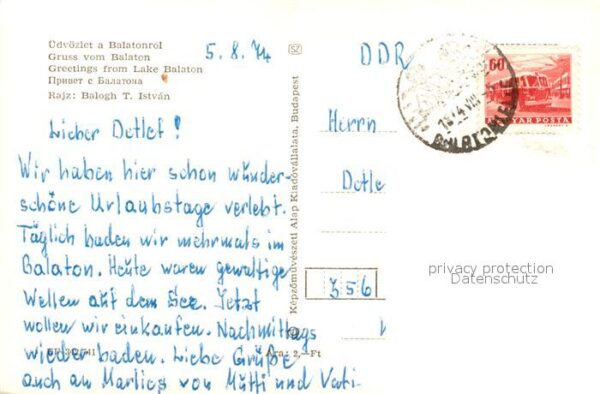 Üdvözlet a Balatonról
Gruss vom Balaton
Greetings from Lake Balaton
Привет с Балатона
Rajz: Balogh T. István
5.8.74
Lieber Detlef!
Wir haben hier schon wunder-
schöne Urlaubstage verlebt.
Täglich baden wir mehrmals im
Balaton. Heute waren gewaltige
Wellen auf dem See. Jetzt
wollen wir einkaufen. Nachmittags
wieder baden. Liebe Grüße
auch an Marlies von Mutti und Vati
Ára: 2,- Ft
Képzőművészeti Alap Kiadóvállalata, Budapest
DDR
Herrn
Detle
356
60
MAGYAR POSTA
privacy protection
Datenschutz